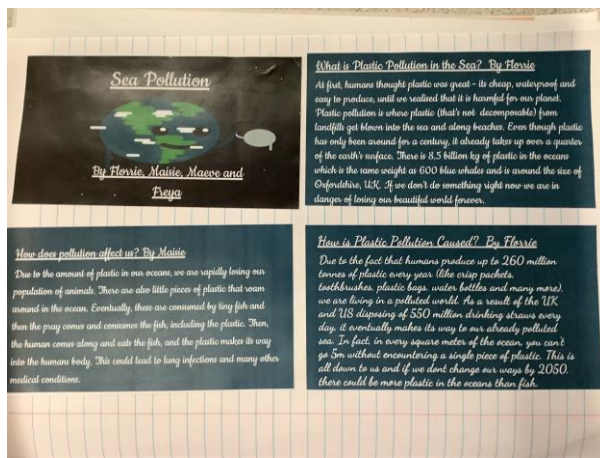 Sea Pollution
By Florrie, Maisie, Maeve and
Freya
What is Plastic Pollution in the Sea? By Florrie
At first, humans thought plastic was great - its cheap, waterproof and
easy to produce, until we realised that it is harmful for our planet.
Plastic pollution is where plastic (that's not decomposable) from
landfills get blown into the sea and along beaches. Even though plastic
has only been around for a century, it already takes up over a quarter
of the earth's surface. There is 8.5 billion kg of plastic in the oceans
which is the same weight as 600 blue whales and is around the size of
Oxfordshire, U.K. If we don't do something right now we are in
danger of losing our beautiful world forever.
How does pollution affect us? By Maisie
Due to the amount of plastic in our oceans, we are rapidly losing our
population of animals. There are also little pieces of plastic that roam
around in the ocean. Eventually, these are consumed by tiny fish and
then the pray comes and consumes the fish, including the plastic. Then,
the human comes along and eats the fish, and the plastic makes its way
into the humans body. This could lead to lung infections and many other
medical conditions.
How is Plastic Pollution Caused? By Florrie
Due to the fact that humans produce up to 260 million
tonnes of plastic every year (like crisp packets,
toothbrushes, plastic bags, water bottles and many more),
we are living in a polluted world. As a result of the UK
and US disposing of 550 million drinking straws every
day, it eventually makes its way to our already polluted
sea. In fact, in every square meter of the ocean, you can't
go 5m without encountering a single piece of plastic. This is
all down to us and if we dont change our ways by 2050,
there could be more plastic in the oceans than fish.